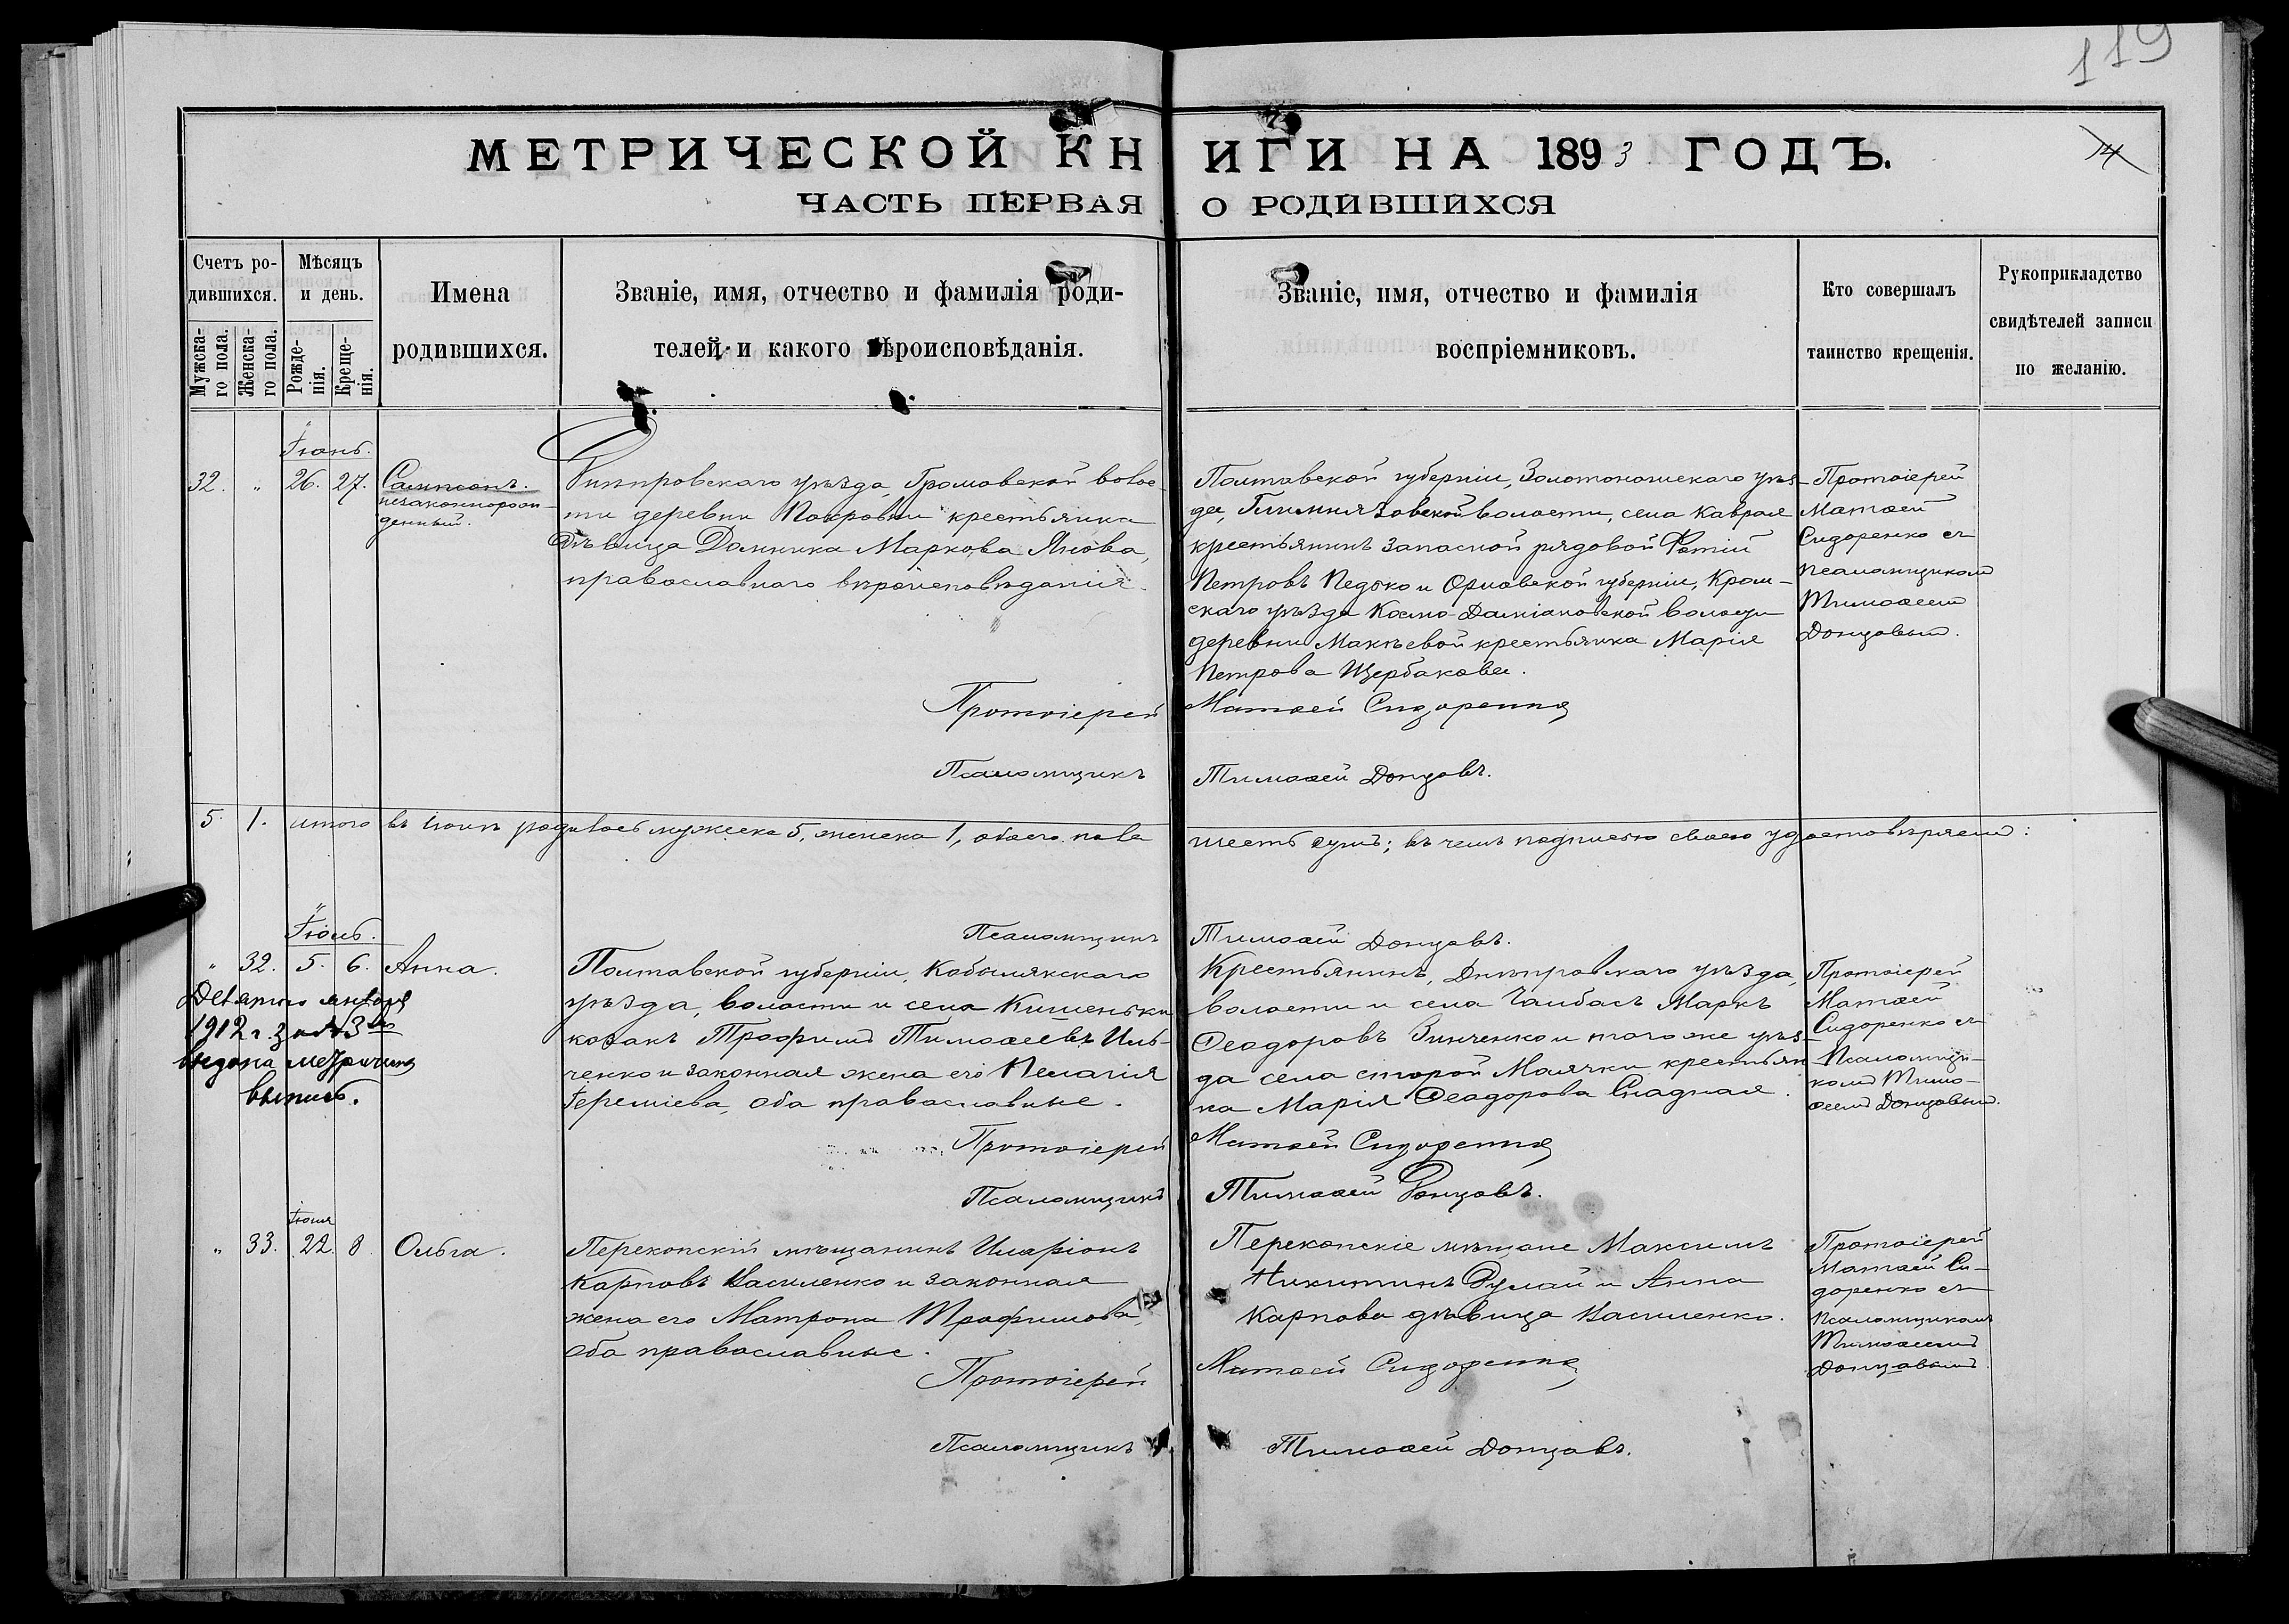 119
МЕТРИЧЕСКОЙ КНИГИ НА 1893 ГОДЪ.
ЧАСТЬ ПЕРВАЯ О РОДИВШИХСЯ
Счетъ ро-
дившихся.
Мужска-
го пола.
Женска-
го пола.
Мѣсяцъ
и день.
Рожде-
нія.
Креще-
нія.
Имена
родившихся.
Званіе, имя, отчество и фамилія роди-
телей и какого вѣроисповѣданія.
Званіе, имя, отчество и фамилія
воспріемниковъ.
Кто совершалъ
таинство крещенія.
Рукоприкладство
свидѣтелей записи
по желанію.
Іюнь.
32. " 26. 27. Сампсонъ.
незаконнорож-
денный.
Днѣпровскаго уѣзда, Громовской волос-
ти деревни Покровки крестьянка
дѣвица Домника Маркова Янова,
православнаго вѣроисповѣданія.
Полтавской губерніи, Золотоношскаго уѣз-
да, волости, села Каврая
крестьянинъ запасной рядовой Фотій
Петровъ Педько и Орловской губерніи, Кром-
скаго уѣзда Космо-Даміановской волости
деревни Макѣевой крестьянка Марія
Петрова Щербакова.
Протоіерей
Матѳей
Сидоренко съ
псаломщикомъ
Тимоѳеемъ
Донцовымъ.
Протоіерей Матѳей Сидоренко
Псаломщикъ Тимоѳей Донцовъ.
5. 1. итого въ іюнѣ родилось мужеска 5, женска 1, обоего пола шесть душъ; въ чемъ подписью своею удостовѣряемъ:
Псаломщикъ Тимоѳей Донцовъ.
Іюль.
" 32. 5. 6. Анна.
1912 г. за № 3
выдана метрич
выпись.
Полтавской губерніи, Кобылякскаго
уѣзда, волости и села Кишеньки
козакъ Трофимъ Тимоѳеевъ Иль-
ченко и законная жена его Пелагія
Іереміева, оба православные.
Крестьянинъ, Днѣпровскаго уѣзда,
волости и села Чалбасъ Маркъ
Ѳеодоровъ Зинченко и того же уѣз-
да села старой Маячки крестьян-
ка Марія Ѳеодорова Гладкая.
Протоіерей
Матѳей
Сидоренко съ
Псаломщи-
комъ Тимо-
ѳеемъ Донцовымъ.
Протоіерей Матѳей Сидоренко
Псаломщикъ Тимоѳей Донцовъ.
Іюня
" 33. 22. 8. Ольга.
Перекопскій мѣщанинъ Иларіонъ
Карповъ Василенко и законная
жена его Матрона Трофимова,
оба православные.
Перекопскіе мѣщане Максимъ
Никитинъ Дулай и Анна
Карпова дѣвица Василенко.
Протоіерей
Матѳей Си-
доренко съ
псаломщикомъ
Тимоѳеемъ
Донцовымъ
Протоіерей Матѳей Сидоренко
Псаломщикъ Тимоѳей Донцовъ.